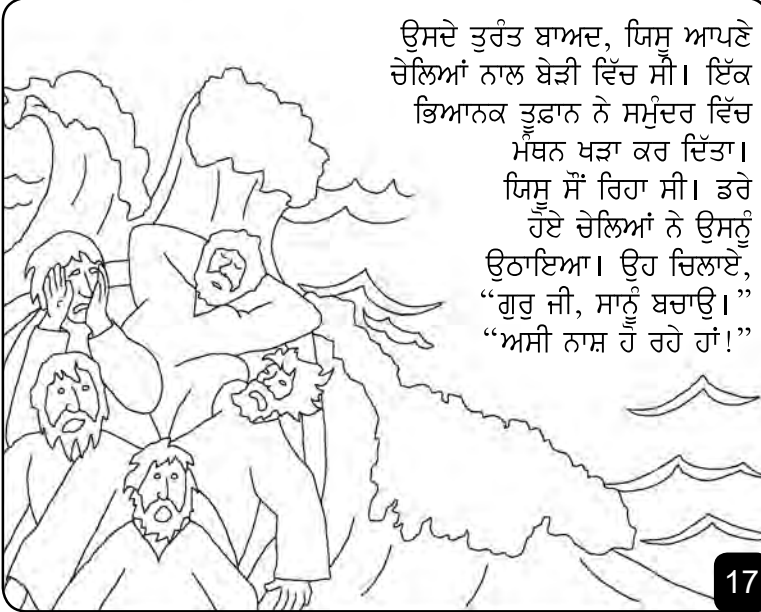 ਉਸਦੇ ਤੁਰੰਤ ਬਾਅਦ, ਯਿਸੂ ਆਪਣੇ
ਚੇਲਿਆਂ ਨਾਲ ਬੇੜੀ ਵਿੱਚ ਸੀ। ਇੱਕ
ਭਿਆਨਕ ਤੂਫ਼ਾਨ ਨੇ ਸਮੁੰਦਰ ਵਿੱਚ
ਮੰਥਨ ਖੜਾ ਕਰ ਦਿੱਤਾ।
ਯਿਸੂ ਸੌਂ ਰਿਹਾ ਸੀ। ਡਰੇ
ਹੋਏ ਚੇਲਿਆਂ ਨੇ ਉਸਨੂੰ
ਉਠਾਇਆ। ਉਹ ਚਿਲਾਏ,
“ਗੁਰੁ ਜੀ, ਸਾਨੂੰ ਬਚਾਉ।”
“ਅਸੀ ਨਾਸ਼ ਹੋ ਰਹੇ ਹਾਂ!”
17